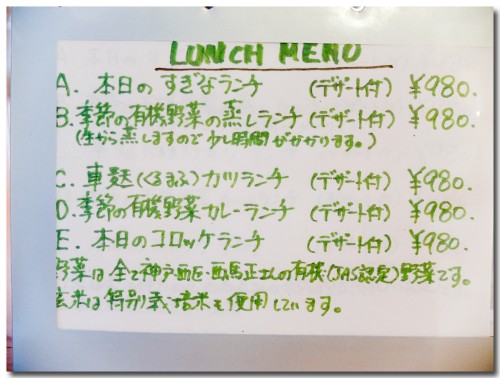 LUNCH MENU
A. 本日の すぎなランチ (デザート付) ¥980.
B. 季節の有機野菜の蒸しランチ (デザート付) ¥980.
(生から蒸しますので少し時間がかかります。)
C. 車麩(くるまふ)カツランチ (デザート付) ¥980.
D. 季節の有機野菜カレーランチ (デザート付) ¥980.
E. 本日のコロッケランチ (デザート付) ¥980.
野菜は全て神戸西区・西馬正さんの有機(JAS認定)野菜です。
玄米は特別栽培米を使用しています。